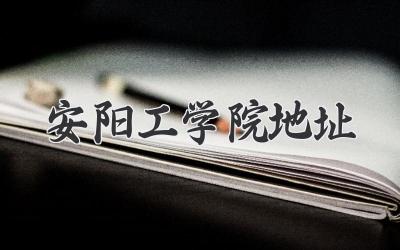 安阳工学院地址